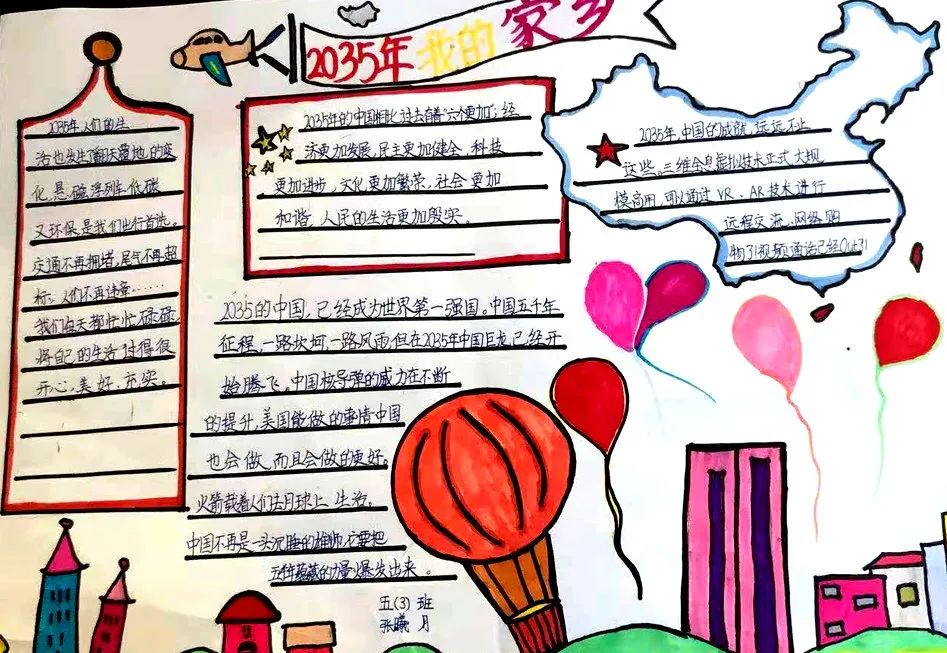 2035年 我的家乡
2035年人们的生
活也发生了翻天覆地的变
化,悬磁浮列车低碳
又环保是我们出行首选。
交通不再拥堵,尾气不再超
标,人们不再
我们每天都忙忙碌碌
将自己的生活过得很
开心,美好,充实。
2035年的中国相比过去有着“六个更加”;经
济更加发展,民主更加健全,科技
更加进步,文化更加繁荣,社会更加
和谐,人民的生活更加殷实。
2035年中国的成就,远远不止
这些,三维全息虚拟技术正式大规
模商用,可以通过VR、AR技术进行
远程交流,网络购
视频通话已经Out
2035的中国,已经成为世界第一强国。中国五千年
征程,一路坎坷,一路风雨,但在2035年中国巨龙已经开
始腾飞,中国核导弹的威力在不断
的提升,美国能做的事情中国
也会做,而且会做的更好。
火箭载着人们去月球上生活。
中国不再是一头沉睡的雄狮,它要把
五千年蕴藏的力量爆发出来。
五(3)班
张曦月